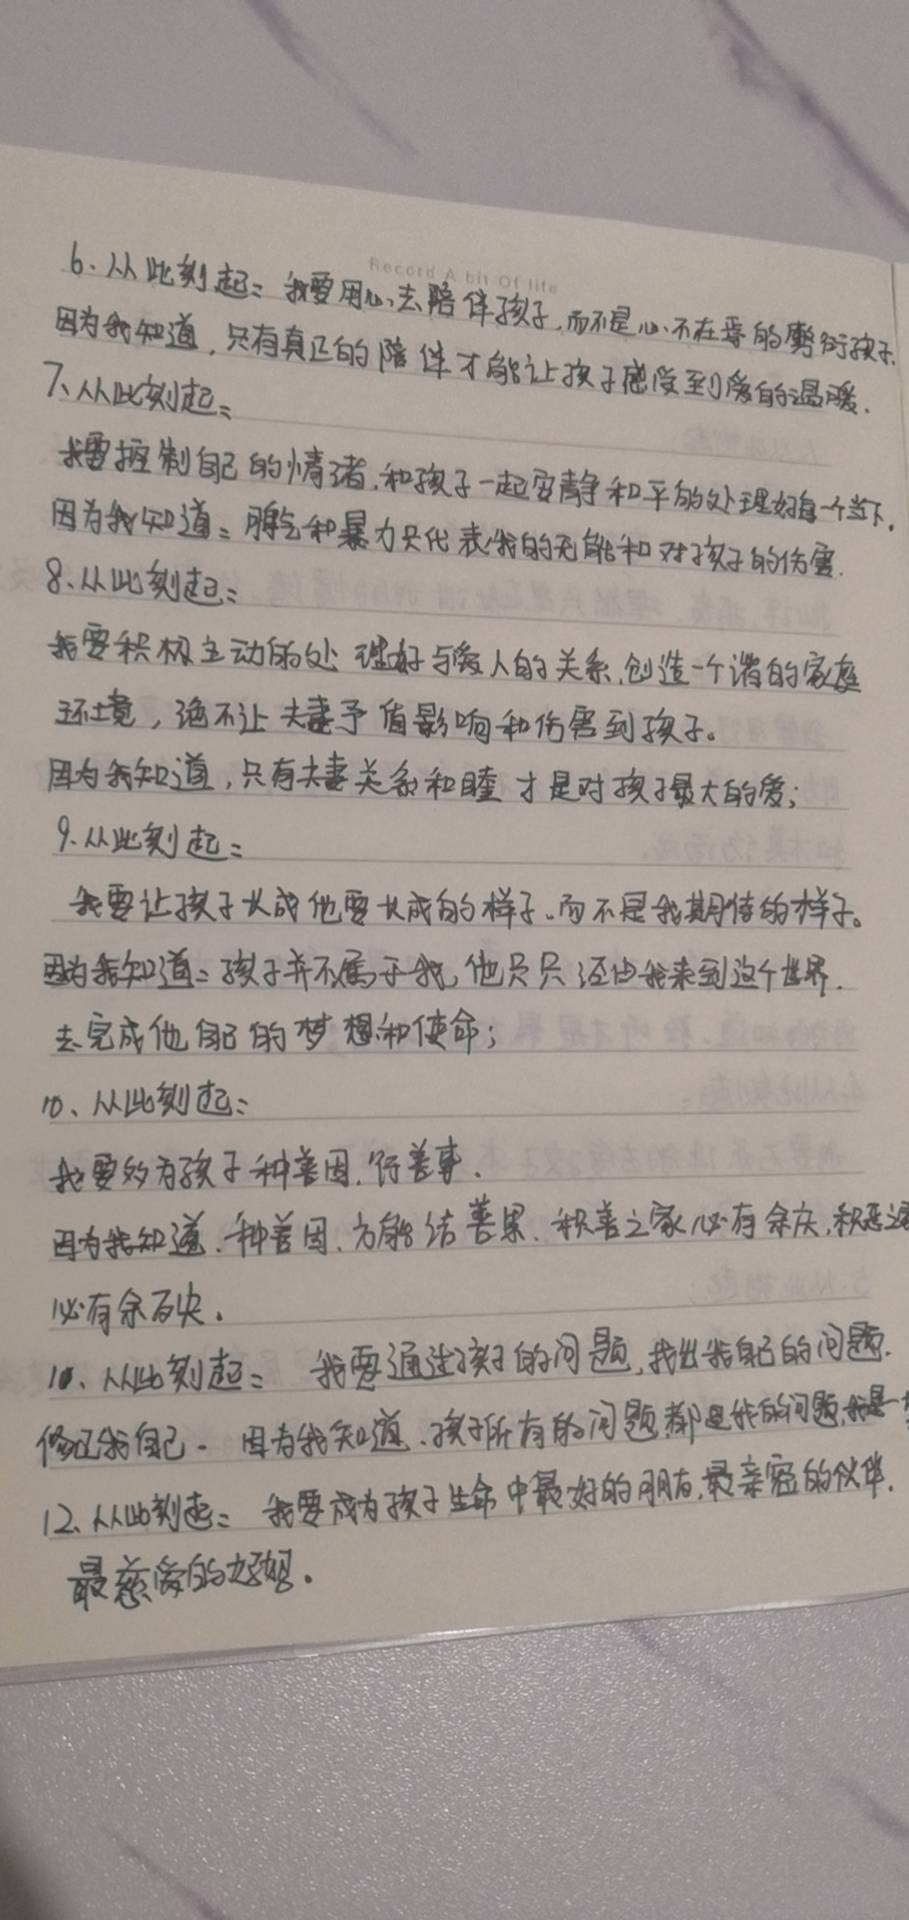 Record A bit Of life
6.从此刻起：我要用心去陪伴孩子,而不是心不在焉的敷衍孩子.
因为我知道,只有真正的陪伴才能让孩子感受到爱的温暖.
7、从此刻起：
我要控制自己的情绪.和孩子一起安静和平的处理好每一个当下.
因为我知道：脾气和暴力只代表我的无能和对孩子的伤害.
8、从此刻起：
我要积极主动的处理好与爱人的关系.创造一个谐的家庭
环境，绝不让夫妻予值影响和伤害到孩子。
因为我知道,只有夫妻关系和睦才是对孩子最大的爱;
9.从此刻起：
我要让孩子长成他要长成的样子。而不是我期待的样子。
因为我知道：孩子并不属于我,他只只经由我来到这个世界.
去完成他自己的梦想和使命;
10、从此刻起：
我要多为孩子种善因.行善事.
因为我知道.种善因.方能结善果.积善之家必有余庆,积恶之家
必有余殃.
10、从此刻起： 我要通过孩子的问题,找出我自己的问题.
修正我自己. 因为我知道.孩子所有的问题都是我的问题.我是一
12、从此刻起：我要成为孩子生命中最好的朋友.最亲密的伙伴.
最慈爱的好妈.